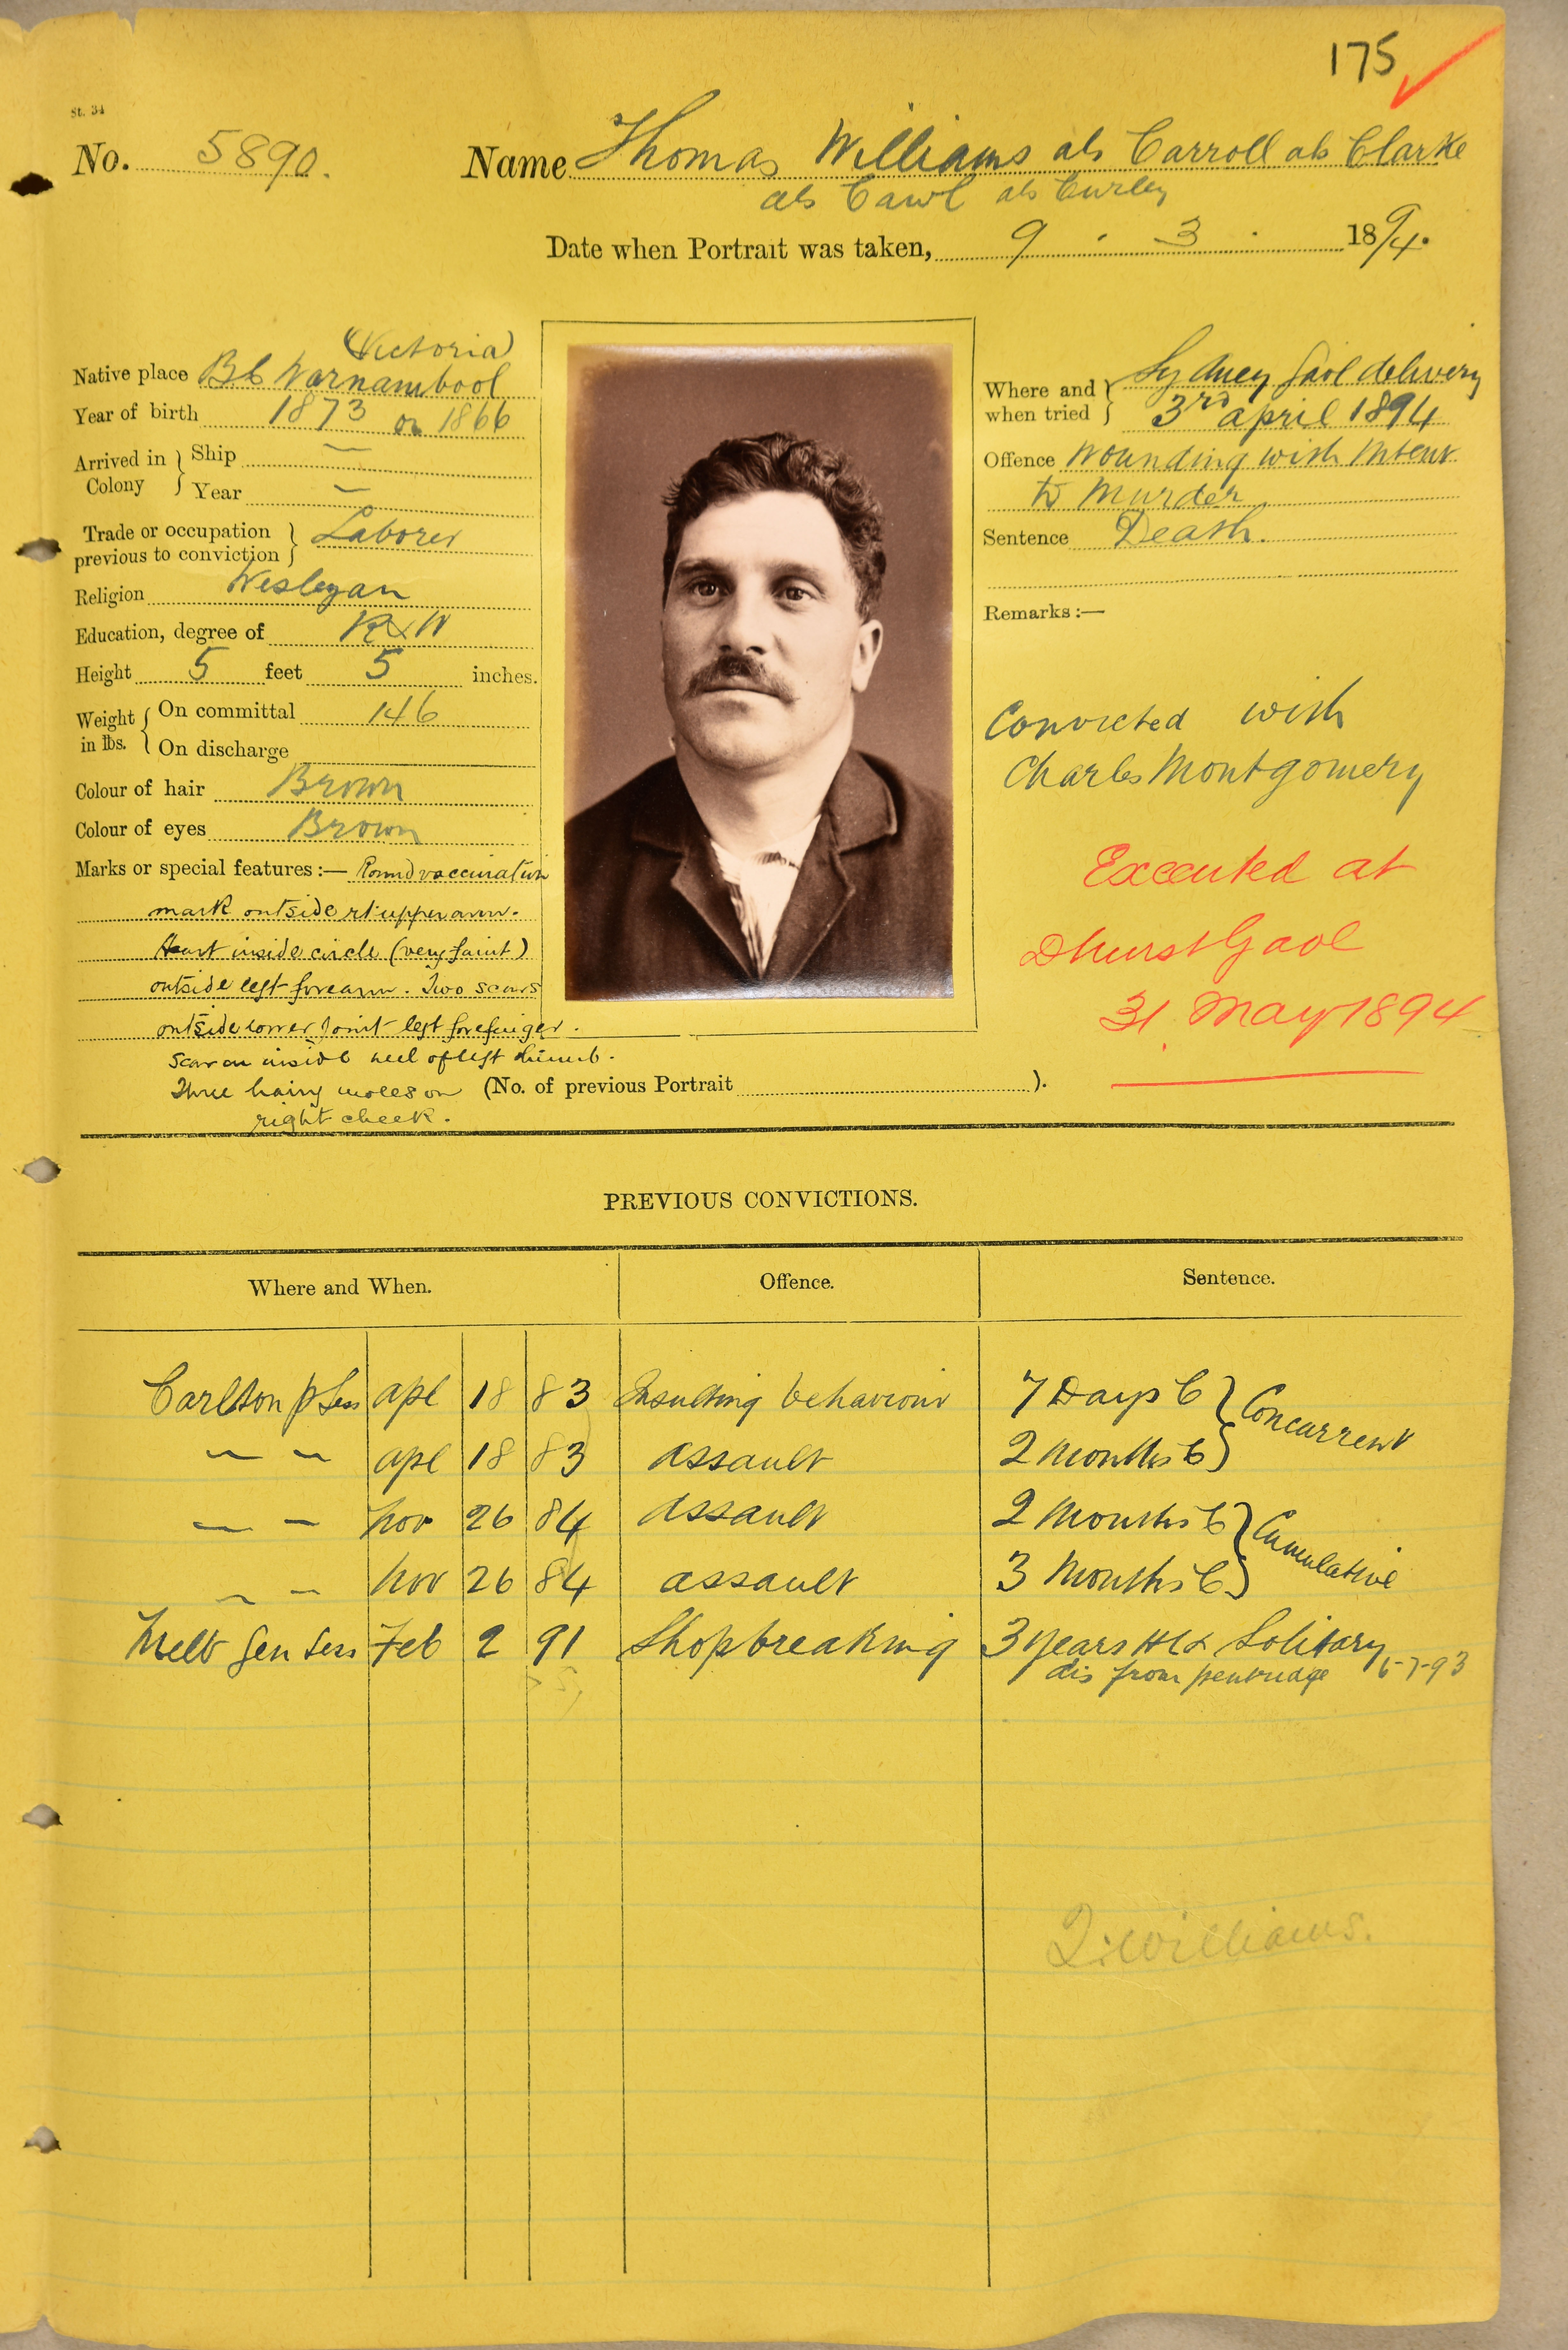 175
St. 34
No. 5890. Name Thomas Williams als Carroll als Clarke
als Cawl als Curley
Date when Portrait was taken, 9 . 3 . 1894.
(Victoria)
Native place BC Warnambool
Year of birth 1873 or 1866
Arrived in Colony } Ship —
Year —
Trade or occupation previous to conviction } Laborer
Religion Wesleyan
Education, degree of R & W
Height 5 feet 5 inches.
Weight in lbs. { On committal 146
On discharge
Colour of hair Brown
Colour of eyes Brown
Marks or special features :— Round vaccination
mark outside rt upper arm.
Heart inside circle (very faint)
outside left forearm. Two scars
outside lower joint left forefinger.
scar on inside heel of left thumb.
Three hairy moles on
right cheek.
(No. of previous Portrait ).
Where and when tried } Sydney Gaol delivery
3rd april 1894
Offence Wounding with Intent
to Murder
Sentence Death.
Remarks :—
Convicted with
Charles Montgomery
Executed at
Dhurst Gaol
31 May 1894
PREVIOUS CONVICTIONS.
Where and When. Offence. Sentence.
Carlton P Sess apl 18 83 Insulting behaviour 7 Days C } Concurrent
" " apl 18 83 assault 2 Months C
" " Nov 26 84 assault 2 Months C } Cumulative
" " Nov 26 84 assault 3 Months C
Melb Gen Sess Feb 2 91 Shopbreaking 3 years HL & Solitary
dis from pentridge 6-7-93
T. Williams.